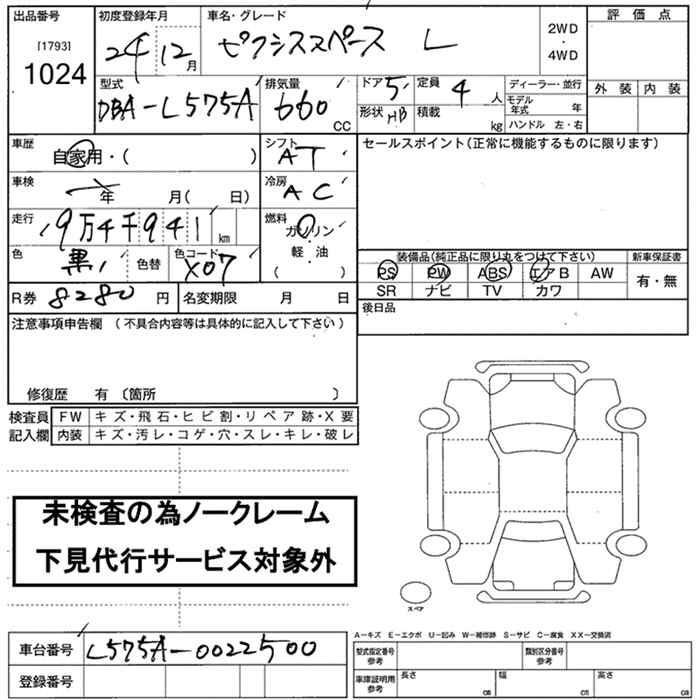 出品番号 初度登録年月 車名・グレード 評価点
[1793]
1024
24 12月 ピクシススペース L 2WD・4WD
型式 排気量 ドア 5 定員 4人 ディーラー・並行 外装 内装
DBA-L575A 660 CC 形状 HB 積載 kg モデル年式 年
ハンドル 左・右
車歴 自家用・( ) シフト AT セールスポイント(正常に機能するものに限ります)
車検 年 月( 日) 冷房 AC
走行 9万4千941 km 燃料 ガソリン・軽・油 ( )
色 黒 色替 色コード X07 装備品(純正品に限り丸をつけて下さい) 新車保証書
PS PW ABS エアB AW 有・無
SR ナビ TV カワ
R券 8280円 名変期限 月 日 後日品
注意事項申告欄 (不具合内容等は具体的に記入して下さい)
修復歴 有 〔箇所 〕
検査員 FW キズ・飛石・ヒビ割・リペア跡・X要
記入欄 内装 キズ・汚レ・コゲ・穴・スレ・キレ・破レ
未検査の為ノークレーム
下見代行サービス対象外
スペア
A-キズ E-エクボ U-凹み W-補修跡 S-サビ C-腐食 XX-交換済
車台番号 L575A-0022500 型式指定番号 参考 類別区分番号 参考
登録番号 車庫証明用 参考 長さ cm 幅 cm 高さ cm